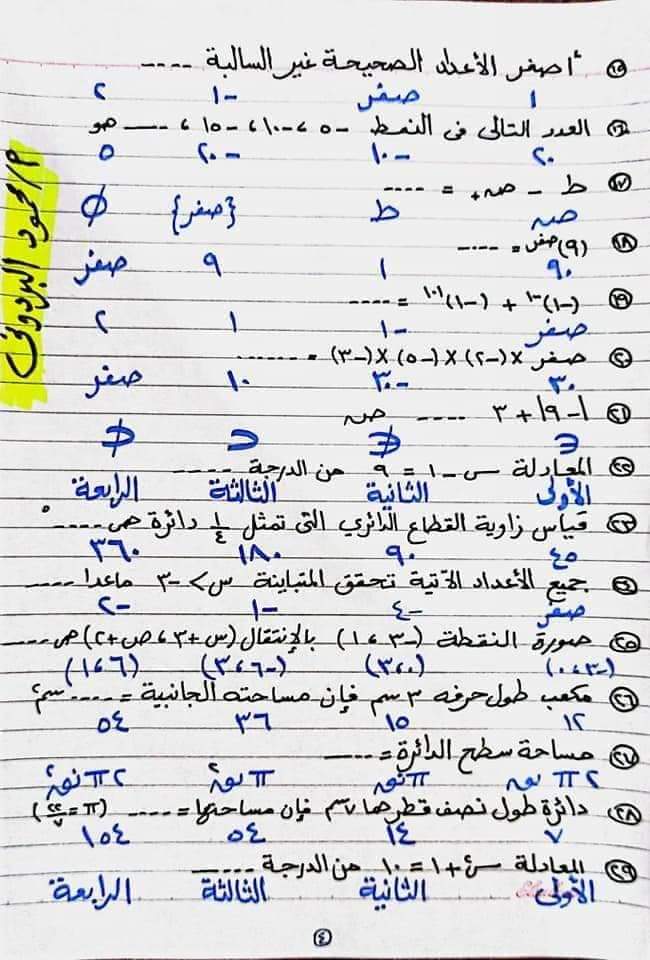 ١٥ أصغر الأعداد الصحيحة غير السالبة ----
١ صفر -١ ٢
١٦ العدد التالى فى النمط -٥ ، -١٠ ، -١٥ ، ---- هو
٢٠ -١٠ -٢٠ ٥
١٧ ط - صہ+ = ----
صہ ط {صفر} ∅
١٨ (٩)صفر = ----
٩٠ ١ ٩ صفر
١٩ (-١)١٠٠ + (-١)١٠١ = ----
صفر -١ ١ ٢
٢٠ صفر × (-٢) × (-٥) × (-٣) = ------
٣٠ -٣٠ ١٠ صفر
٢١ |-٩| + ٣ ---- صہ
∈ ∉ ⊂ ⊄
٢٢ المعادلة س - ١ = ٩ من الدرجة ----
الأولى الثانية الثالثة الرابعة
٢٣ قياس زاوية القطاع الدائري التى تمثل ١/٤ دائرة هى ----°
٤٥ ٩٠ ١٨٠ ٣٦٠
٢٤ جميع الأعداد الآتية تحقق المتباينة س > -٣ ماعدا ----
صفر -٤ -١ -٢
٢٥ صورة النقطة (-٣ ، ١) بالإنتقال (س + ٣ ، ص + ٢) هى ----
(-٣ ، ٠) (٠ ، ٣) (-٦ ، ٣) (٦ ، ١)
٢٦ مكعب طول حرفه ٣ سم فإن مساحته الجانبية = ---- سم٢
١٢ ١٥ ٣٦ ٥٤
٢٧ مساحة سطح الدائرة = ----
٢ π نوہ π نوہ π نوہ٢ ٢ π نوہ٢
٢٨ دائرة طول نصف قطرها ٧ سم فإن مساحتها = ---- (π = ٢٢/٧)
٧ ١٤ ٥٤ ١٥٤
٢٩ المعادلة س٢ + ١ = ١٠ من الدرجة ----
الأولى الثانية الثالثة الرابعة
٤
م/ محمود البردونى